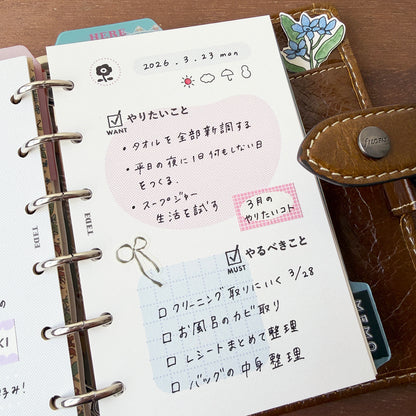 HERE
2026.3.23 mon
やりたいこと
WANT
・タオルを全部新調する
・平日の夜に1日何もしない日
をつくる.
・スープジャー
生活を試す
3月の
やりたいコト
やるべきこと
MUST
□ クリーニング取りにいく 3/28
□ お風呂のカビ取り
□ レシートまとめて整理
□ バッグの中身整理
TEDE
TEDE
MEMO
KI
み!